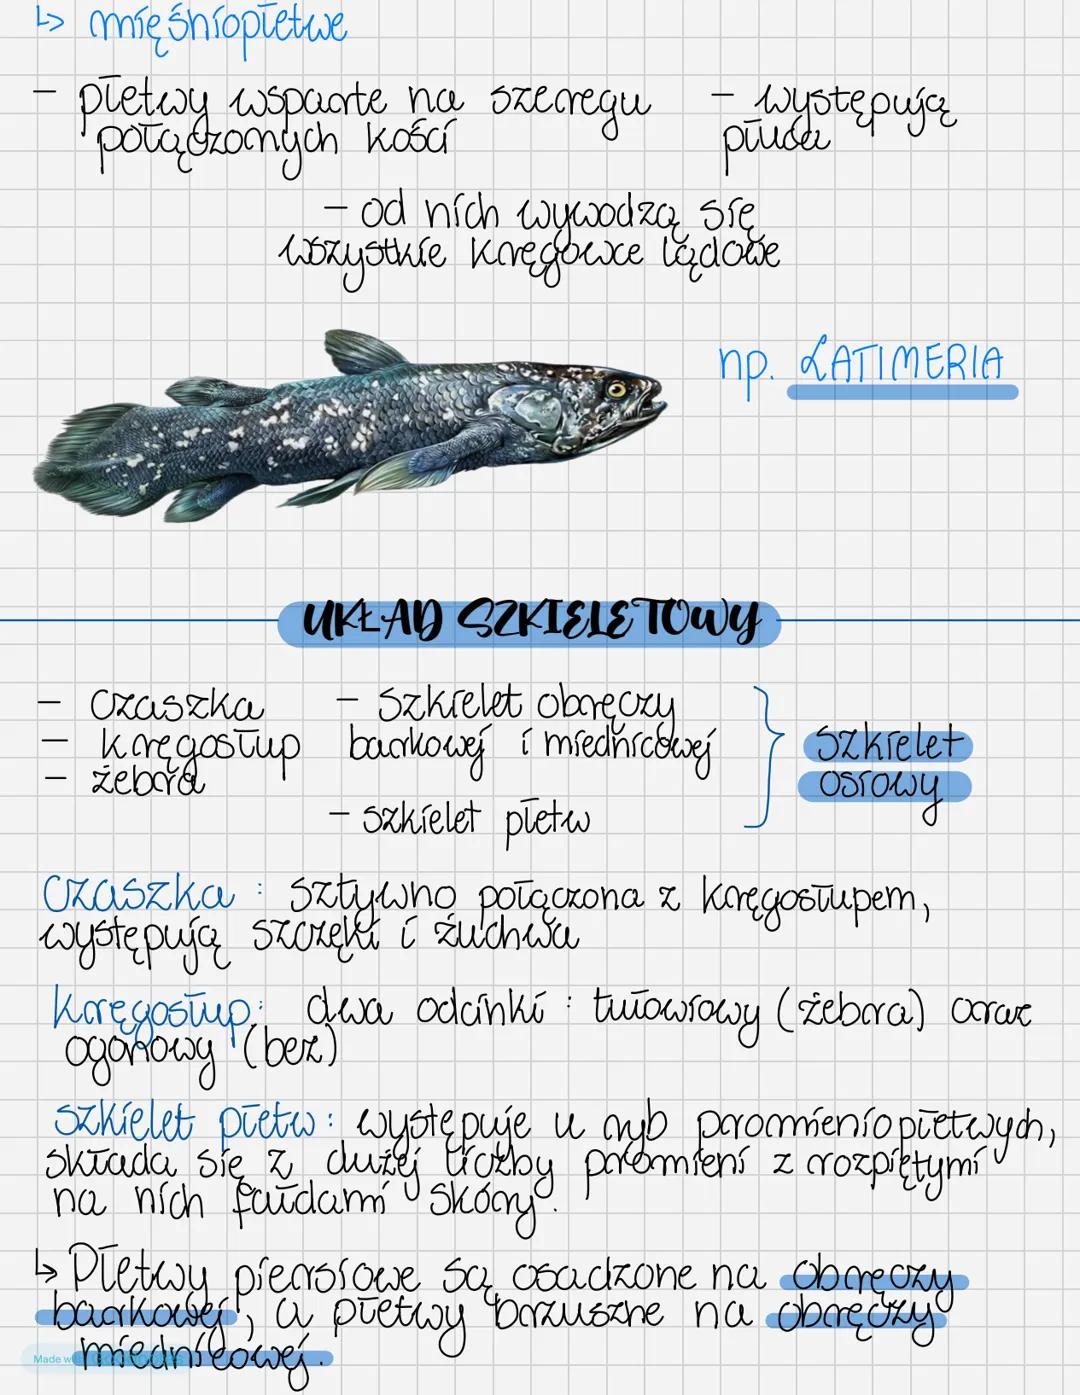 ↳ mięśniopłetwe
- płetwy wsparte na szeregu
połączonych kości
- występują
płuca
- od nich wywodzą się
wszystkie kręgowce lądowe
np. LATIMERIA
UKŁAD SZKIELETOWY
- czaszka
- kręgosłup
- żebra
- szkielet obręczy
barkowej i miednicowej
- szkielet płetw
szkielet
osiowy
Czaszka : sztywno połączona z kręgosłupem,
występują szczęki i żuchwa
Kręgosłup: dwa odcinki : tułowiowy (żebra) oraz
ogonowy (bez)
Szkielet płetw : występuje u ryb promieniopłetwych,
składa się z dużej liczby promieni z rozpiętymi
na nich fałdami skóry.
↳ Płetwy piersiowe są osadzone na obręczy
barkowej, a płetwy brzuszne na obręczy
miednicowej.
Made with